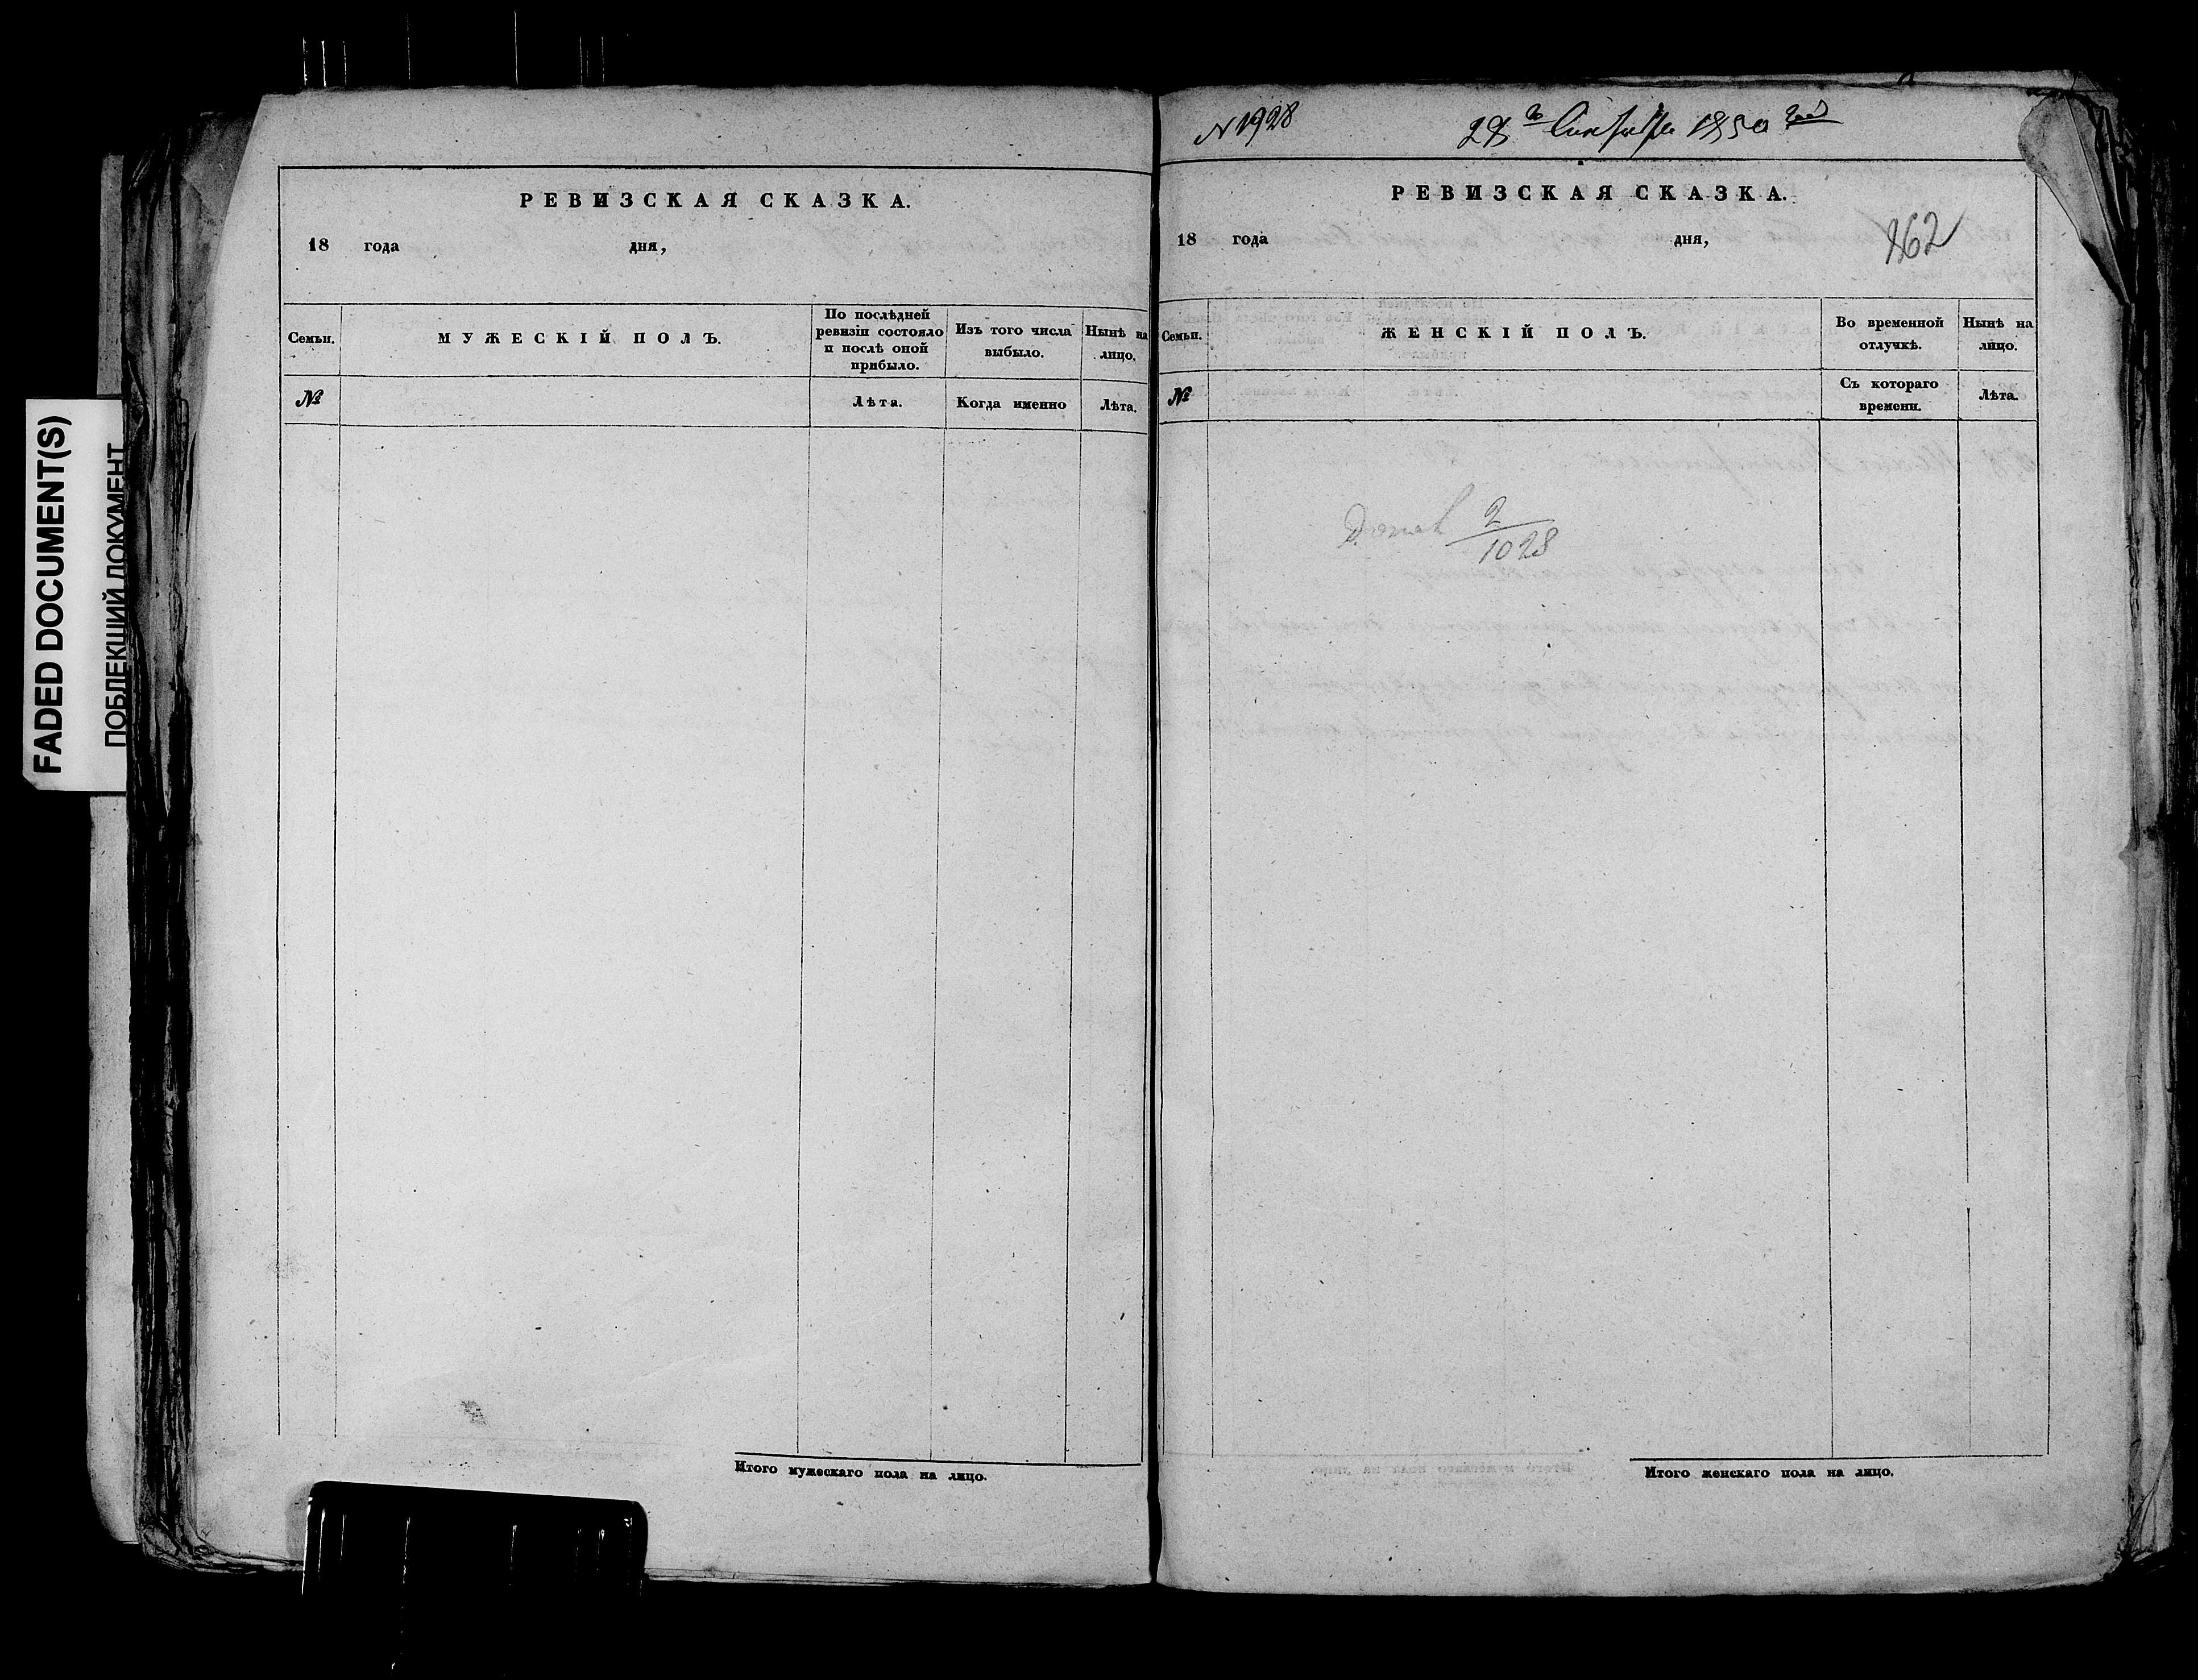 FADED DOCUMENT(S)
ПОБЛЕКШИЙ ДОКУМЕНТ
РЕВИЗСКАЯ СКАЗКА.
18 года дня,
Семьи. МУЖЕСКІЙ ПОЛЪ. По послѣдней ревизіи состояло и послѣ оной прибыло. Изъ того числа выбыло. Нынѣ на лицо.
№ Лѣта. Когда именно Лѣта.
Итого мужескаго пола на лицо.
N 1928 28го Сентября 1850 года
РЕВИЗСКАЯ СКАЗКА.
18 года дня, 162
Семьи. ЖЕНСКІЙ ПОЛЪ. Во временной отлучкѣ. Нынѣ на лицо.
№ Съ котораго времени. Лѣта.
2/1028
Итого женскаго пола на лицо.